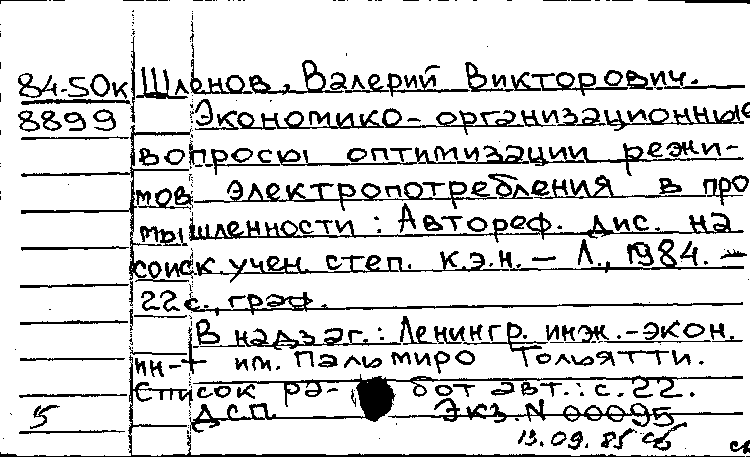 84-50к Шленов, Валерий Викторович.
8899 Экономико-организационные
вопросы оптимизации режи-
мов электропотребления в про
мышленности: Автореф. дис. на
соиск. учен. степ. к.э.н. — Л., 1984. —
22 с., граф.
В надзаг.: Ленингр. инж.-экон.
ин-т им. Пальмиро Тольятти.
Список ра- бот авт.: с. 22.
5 ДСП. Экз. N 00095
13.09.85